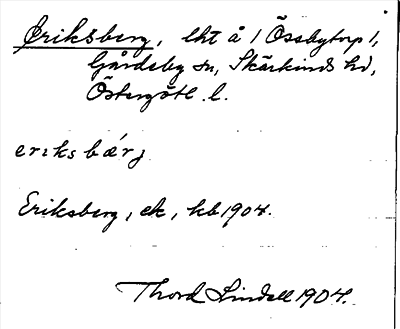 Eriksberg, lht å /Össbytorp/,
Gårdeby sn, Skärkinds hd,
Östergötl. l.
eriksbærj
Eriksberg, ek, kb 1904.
Thord Lindell 1904.